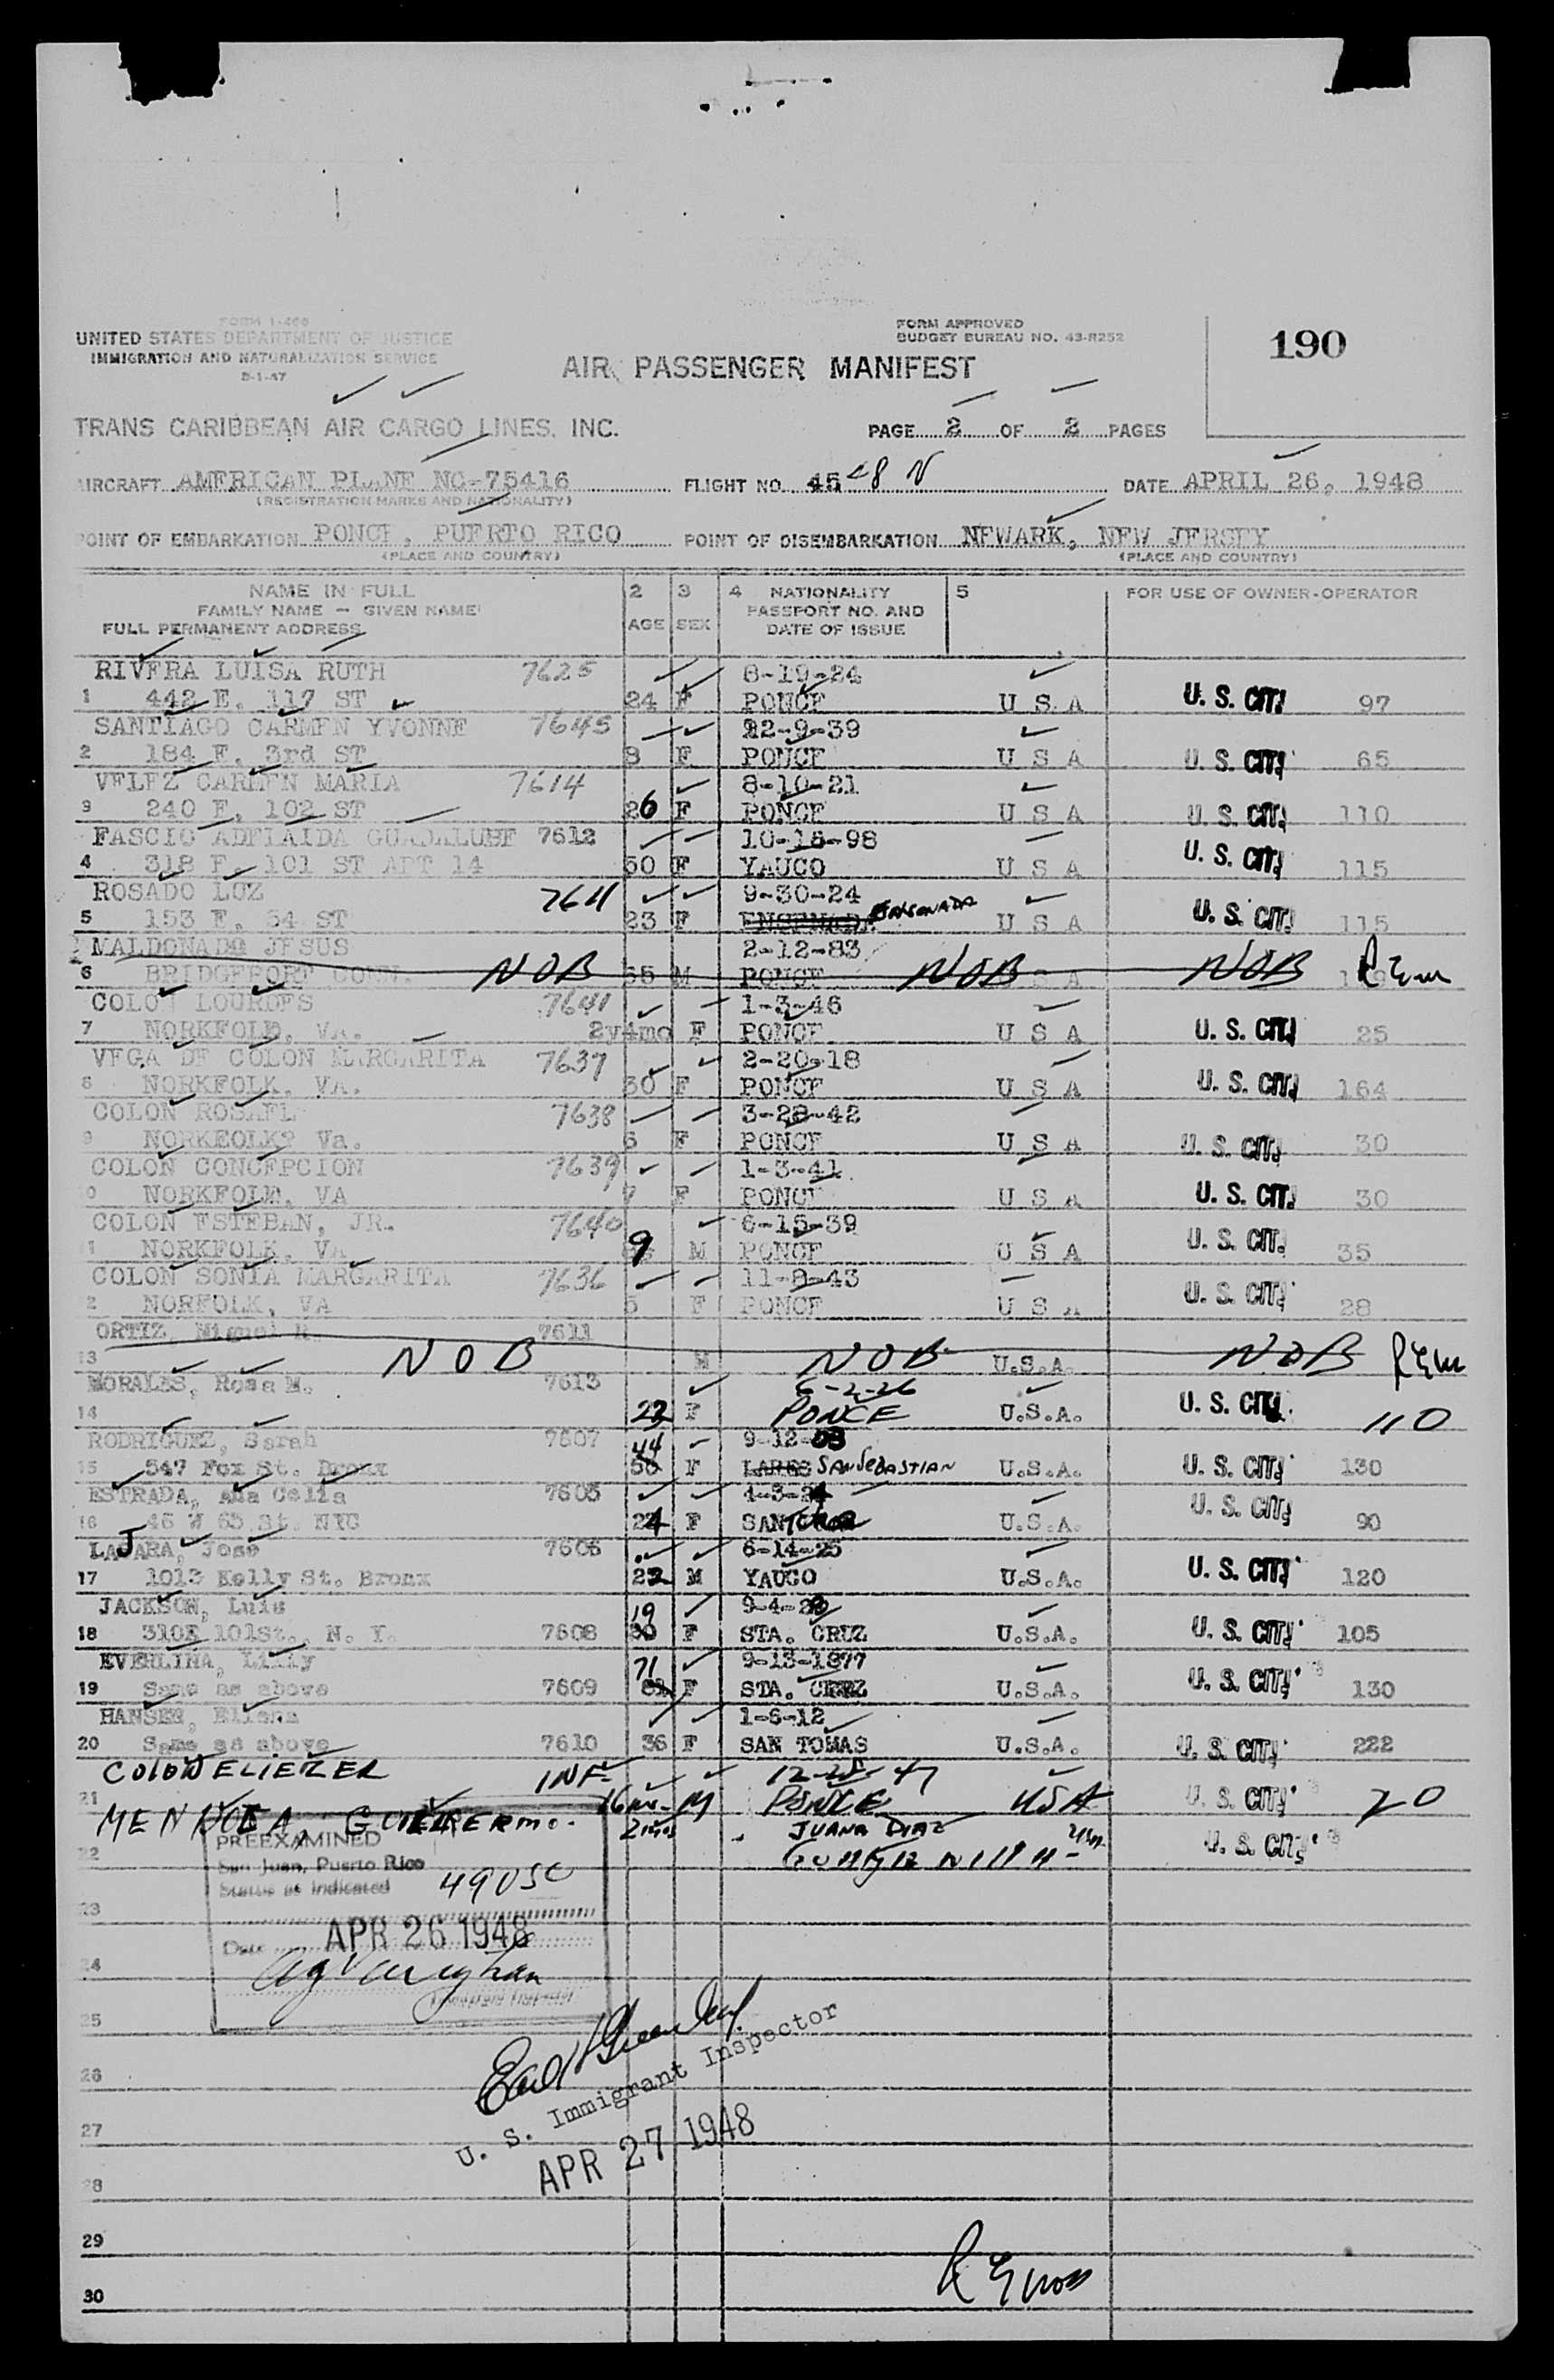 FORM I-466
UNITED STATES DEPARTMENT OF JUSTICE
IMMIGRATION AND NATURALIZATION SERVICE
5-1-47
FORM APPROVED
BUDGET BUREAU NO. 43-R252
190
AIR PASSENGER MANIFEST
TRANS CARIBBEAN AIR CARGO LINES, INC.
PAGE 2 OF 2 PAGES
AIRCRAFT AMERICAN PLANE NC-75416 FLIGHT NO. 48 N DATE APRIL 26, 1948
(REGISTRATION MARKS AND NATIONALITY)
POINT OF EMBARKATION PONCE, PUERTO RICO POINT OF DISEMBARKATION NEWARK, NEW JERSEY
(PLACE AND COUNTRY) (PLACE AND COUNTRY)
NAME IN FULL 2 3 4 NATIONALITY 5 FOR USE OF OWNER-OPERATOR
FAMILY NAME - GIVEN NAME PASSPORT NO. AND
FULL PERMANENT ADDRESS AGE SEX DATE OF ISSUE
RIVERA LUISA RUTH 7625 8-19-24
1 442 E. 117 ST 24 F PONCE U S A U. S. CIT. 97
SANTIAGO CARMEN YVONNE 7645 12-9-39
2 184 E. 3rd ST 8 F PONCE U S A U. S. CIT. 65
VELEZ CARMEN MARIA 7614 8-10-21
9 240 E. 102 ST 26 F PONCE U S A U. S. CIT. 110
FASCIO ADELAIDA GUADALUBE 7612 10-18-98
4 318 E. 101 ST APT 14 50 F YAUCO U S A U. S. CIT. 115
ROSADO LUZ 7611 9-30-24
5 153 E. 54 ST 23 F ENSENADA U S A U. S. CIT. 115
MALDONADO JESUS 2-12-83
6 BRIDGEPORT CONN. NOB 65 M PONCE NOB S A NOB REM
COLON LOURDES 7641 1-3-46
7 NORKFOLK, VA. 2y4mo F PONCE U S A U. S. CIT. 25
VEGA DE COLON MARGARITA 7637 2-20-18
8 NORKFOLK, VA. 30 F PONCE U S A U. S. CIT. 164
COLON ROSAEL 7638 3-28-42
9 NORKEOLK? Va. 6 F PONCE U S A U. S. CIT. 30
COLON CONCEPCION 7639 1-3-41
10 NORKFOLK, VA 7 F PONCE U S A U. S. CIT. 30
COLON ESTEBAN, JR. 7640 6-15-39
11 NORKFOLK, VA 9 M PONCE U S A U. S. CIT. 35
COLON SONIA MARGARITA 7636 11-8-43
12 NORFOLK, VA 5 F PONCE U S A U. S. CIT. 28
ORTIZ, Miguel R. 7611
13 NOB M NOB U.S.A. NOB REM
MORALES, Rosa M. 7613 6-2-26
14 22 F PONCE U.S.A. U. S. CIT. 110
RODRIGUEZ, Sarah 7607 44 9-12-03
15 547 Fox St. Bronx 50 F LARES SAN SEBASTIAN U.S.A. U. S. CIT. 130
ESTRADA, Ana Celia 7605 4-3-24
16 46 W 65 St. NYC 24 F U.S.A. U. S. CIT. 90
LAJARA, Jose 7606 6-14-25
17 1013 Kelly St. Bronx 22 M YAUCO U.S.A. U. S. CIT. 120
JACKSON, Luis 19 9-4-28
18 310E 101St., N. Y. 7608 F STA. CRUZ U.S.A. U. S. CIT. 105
EVERLINA, Lilly 71 9-13-1877
19 Same as above 7609 F STA. CRUZ U.S.A. U. S. CIT. 130
HANSEN, Eliena 1-6-12
20 Same as above 7610 36 F SAN TOMAS U.S.A. U. S. CIT. 222
COLON ELIEZER INF. 12-25-47
21 M PONCE USA U. S. CIT. 20
MENDOZA, GUILLERMO. 2 mos JUANA DIAZ
22 U. S. CIT.
PREEXAMINED
San Juan, Puerto Rico
Status as indicated 49 USC
23
Date APR 26 1948
24
Immigrant Inspector
25
26
U. S. Immigrant Inspector
27
APR 27 1948
28
29
30